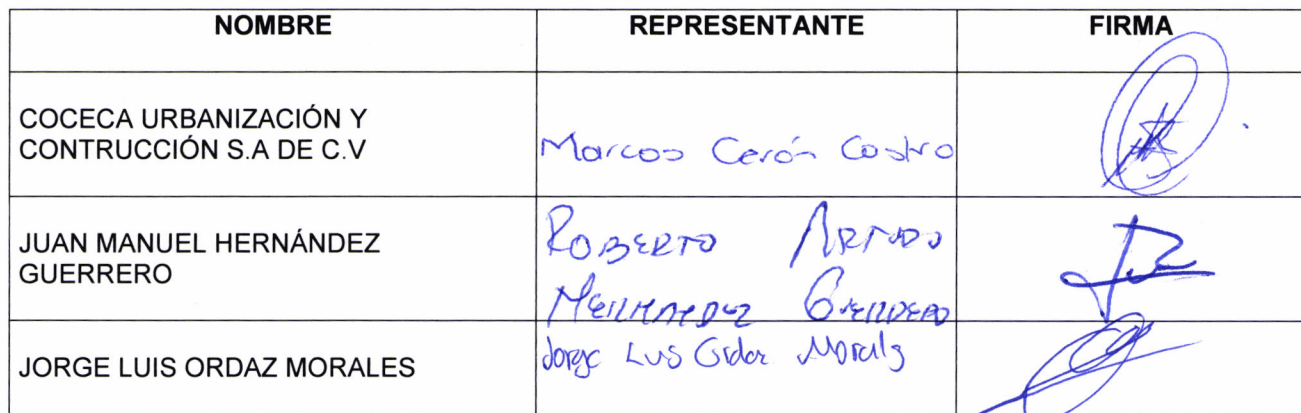 NOMBRE REPRESENTANTE FIRMA
COCECA URBANIZACIÓN Y
CONTRUCCIÓN S.A DE C.V
Marcos Cerón Castro
JUAN MANUEL HERNÁNDEZ
GUERRERO
ROBERTO
HERNANDEZ GUERRERO
JORGE LUIS ORDAZ MORALES
Jorge Luis Ordaz Morales